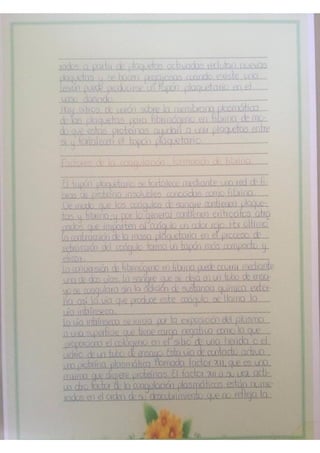 rados a partir de plaquetas activadas reclutan nuevas
plaquetas y se hacen pegajosas cuando existe una
lesión puede producirse un tapón plaquetario en el
vaso dañado.
Hay sitios de unión sobre la membrana plasmática
de las plaquetas para fibrinógeno en fibrina de mo-
do que estas proteínas ayudan a unir plaquetas entre
si y fortalecen el tapón plaquetario.
Factores de la coagulación: formación de fibrina.
El tapón plaquetario se fortalece mediante una red de fi-
bras de proteína insolubles conocidas como fibrina.
De modo que los coágulos de sangre contienen plaque-
tas y fibrina y por lo general contienen eritrocitos atra
pados que imparten al coágulo un color rojo. Por último
la contracción de la masa plaquetaria en el proceso de
retracción del coágulo forma un tapón más compacto y
eficaz.
La conversión de fibrinógeno en fibrina puede ocurrir mediante
una de dos vías. La sangre que se deja en un tubo de ensa-
yo se coagulará sin la adición de sustancia química exter
na así la vía que produce este coágulo se llama la
vía intrínseca.
La vía intrínseca se inicia por la exposición del plasma
a una superficie que tiene carga negativa como la que
proporciona el colágeno en el sitio de una herida o el
vidrio de un tubo de ensayo. Esta vía de contacto activa
una proteína plasmática llamada factor XII, que es una
enzima que digiere proteínas. El factor XII a su vez acti-
va otro factor de la coagulación plasmáticos están nume-
rados en el orden de su descubrimiento que no refleja la